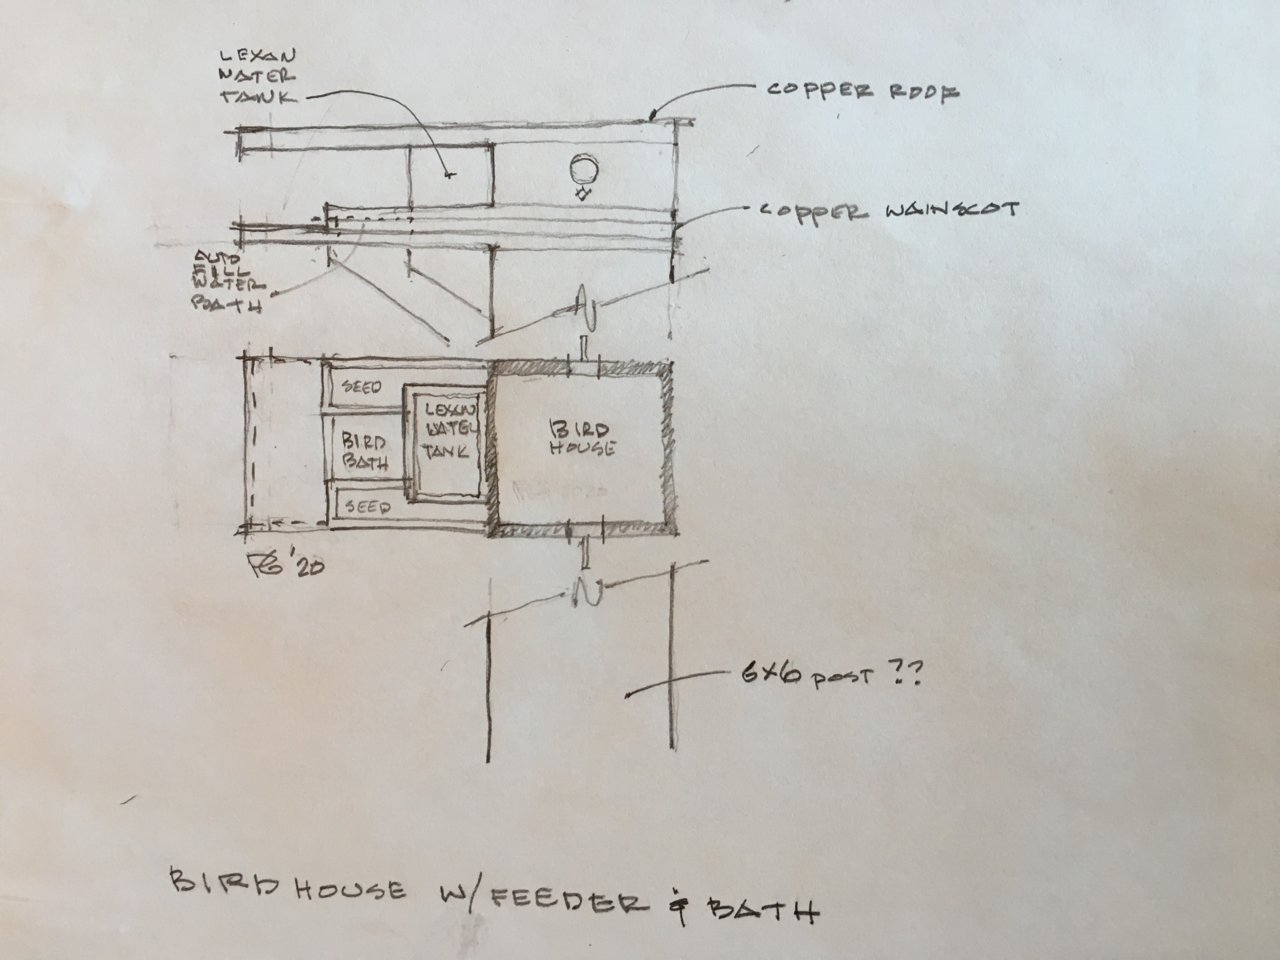 LEXAN
WATER
TANK
COPPER ROOF
COPPER WAINSCOT
AUTO
FILL
WATER
BATH
SEED
LEXAN
WATER
TANK
BIRD
BATH
BIRD
HOUSE
SEED
'20
6x6 post ??
BIRD HOUSE W/ FEEDER & BATH